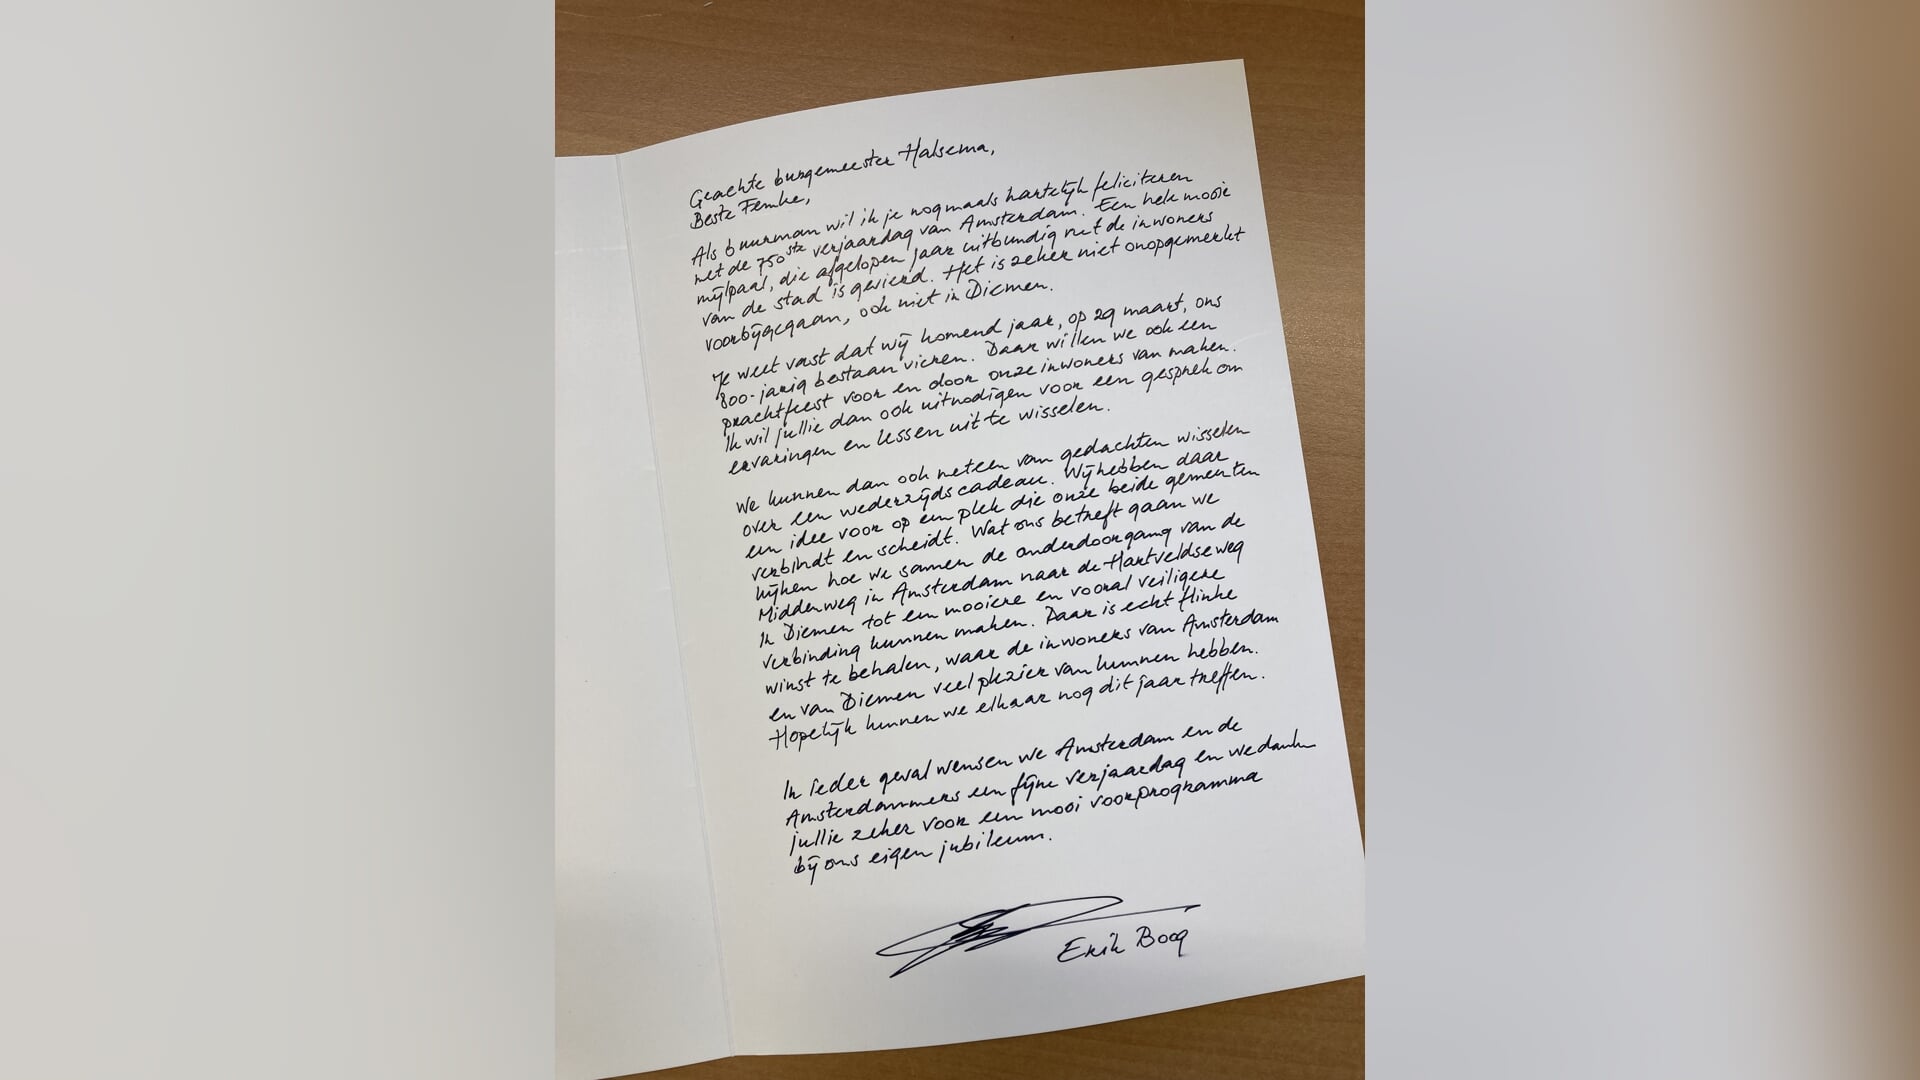 Geachte burgemeester Halsema,
Beste Femke,
Als buurman wil ik je nogmaals hartelijk feliciteren
met de 750ste verjaardag van Amsterdam. Een hele mooie
mijlpaal, die afgelopen jaar uitbundig met de inwoners
van de stad is gevierd. Het is zeker niet onopgemerkt
voorbijgegaan, ook niet in Diemen.
Je weet vast dat wij komend jaar, op 29 maart, ons
800-jarig bestaan vieren. Daar willen we ook een
prachtfeest voor en door onze inwoners van maken.
Ik wil jullie dan ook uitnodigen voor een gesprek om
ervaringen en lessen uit te wisselen.
We kunnen dan ook meteen van gedachten wisselen
over een wederzijds cadeau. Wij hebben daar
een idee voor op een plek die onze beide gemeenten
verbindt en scheidt. Wat ons betreft gaan we
kijken hoe we samen de onderdoorgang van de
Middenweg in Amsterdam naar de Hartveldseweg
in Diemen tot een mooiere en vooral veiligere
verbinding kunnen maken. Daar is echt flinke
winst te behalen, waar de inwoners van Amsterdam
en van Diemen veel plezier van kunnen hebben.
Hopelijk kunnen we elkaar nog dit jaar treffen.
In ieder geval wensen we Amsterdam en de
Amsterdammers een fijne verjaardag en we danken
jullie zeker voor een mooi voorprogramma
bij ons eigen jubileum.
Erik Boog